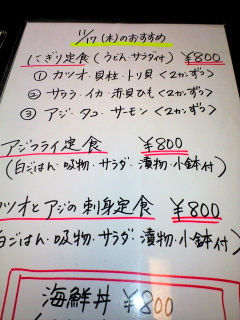 11/17(木)のおすすめ
にぎり定食(うどん・サラダ付) ¥800
① カツオ・貝柱・トリ貝 <2かんずつ>
② サワラ・イカ・赤貝ひも <2かんずつ>
③ アジ・タコ・サーモン <2かんずつ>
アジフライ定食 ¥800
(白ごはん・吸物・サラダ・漬物・小鉢付)
カツオとアジの刺身定食 ¥800
白ごはん・吸物・サラダ・漬物・小鉢付)
海鮮丼 ¥800